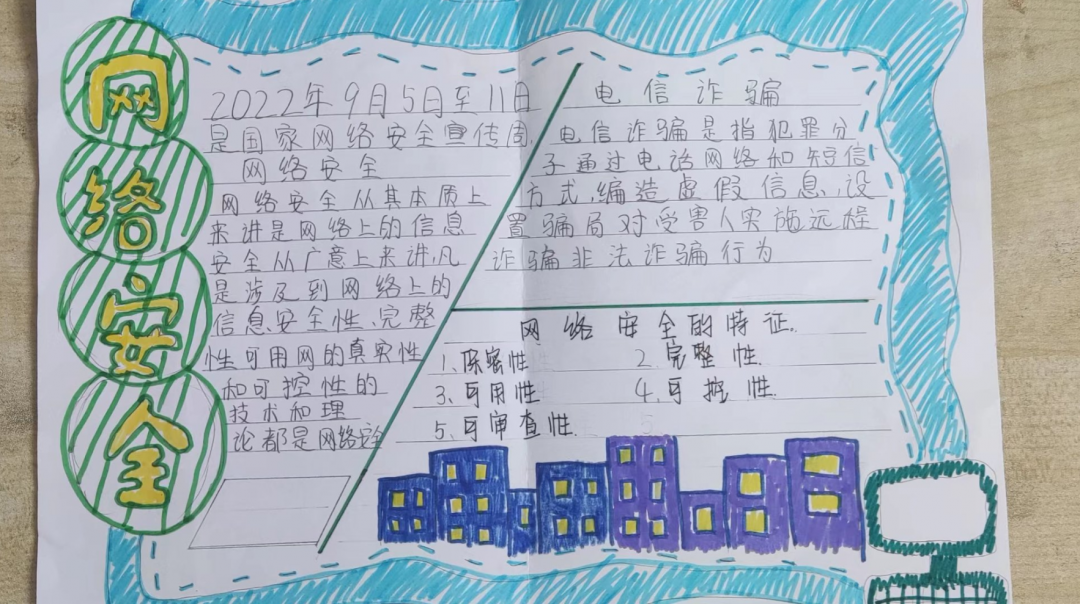 网络安全
2022年9月5日至11日
是国家网络安全宣传周
网络安全
网络安全从其本质上
来讲是网络上的信息
安全从广意上来讲,凡
是涉及到网络上的
信息安全性、完整
性可用网的真实性
和可控性的
技术和理
论都是网络安全
电信诈骗
电信诈骗是指犯罪分
子通过电话网络和短信
方式,编造虚假信息,设
置骗局对受害人实施远程
诈骗非法诈骗行为
网络安全的特征.
1、保密性 2. 完整性.
3、可用性 4、可控性
5、可审查性.